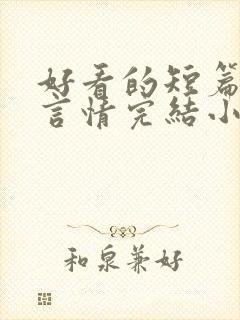 好看的短篇
言情完結小
和泉兼好